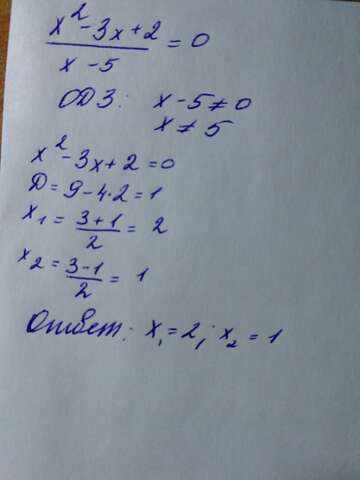 x² - 3x + 2 / x - 5 = 0
ОДЗ: x - 5 ≠ 0
x ≠ 5
x² - 3x + 2 = 0
D = 9 - 4·2 = 1
x₁ = 3 + 1 / 2 = 2
x₂ = 3 - 1 / 2 = 1
Ответ: x₁ = 2; x₂ = 1